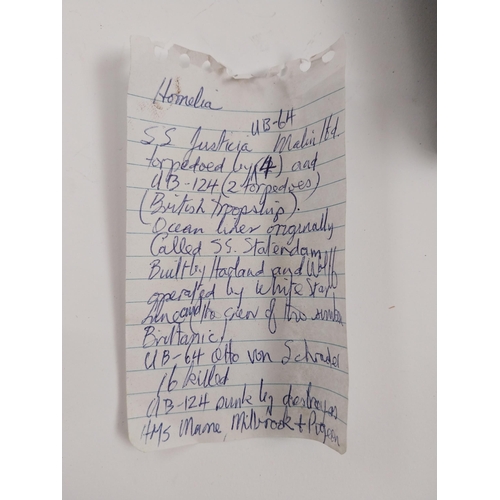 Homelia
UB-64
SS Justicia Malin Hd.
torpedoed by (4) and
UB-124 (2 torpedoes)
(British troopship).
Ocean liner originally
Called SS. Statendam
Built by Harland and Wolff
operated by White Star
Line and to crew of the
Brittanic.
UB-64 Otto von Schrader
16 killed
UB-124 sunk by destroyers
HMS Marne, Milbrook + Pigeon